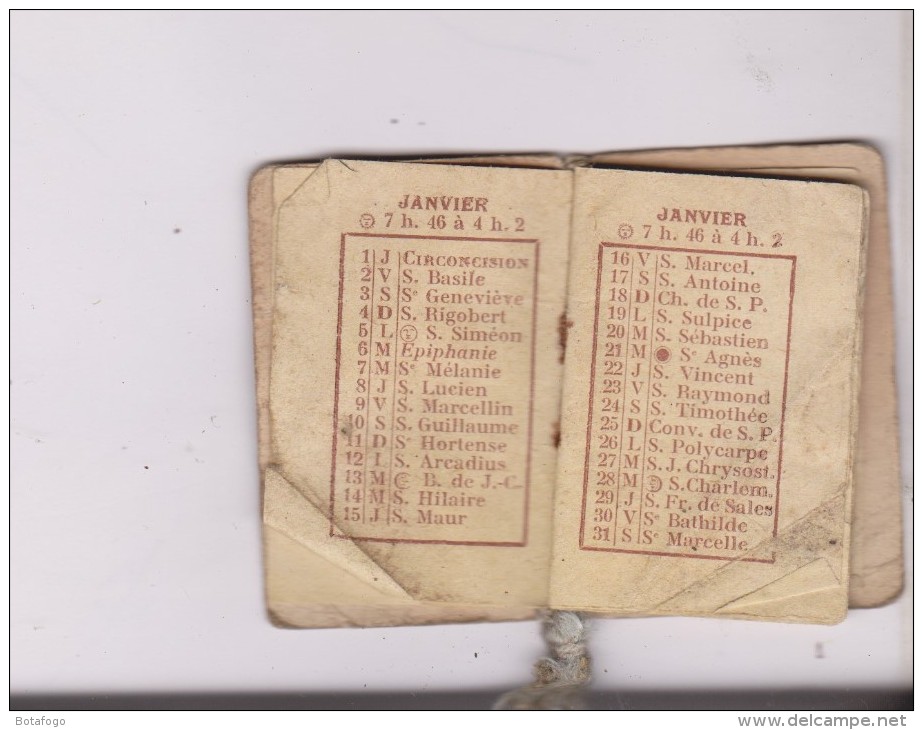 JANVIER
7 h. 46 à 4 h. 2
1 J CIRCONCISION
2 V S. Basile
3 S Se Geneviève
4 D S. Rigobert
5 L S. Siméon
6 M Epiphanie
7 M Se Mélanie
8 J S. Lucien
9 V S. Marcellin
10 S S. Guillaume
11 D Se Hortense
12 L S. Arcadius
13 M B. de J.-C.
14 M S. Hilaire
15 J S. Maur
JANVIER
7 h. 46 à 4 h. 2
16 V S. Marcel.
17 S S. Antoine
18 D Ch. de S. P.
19 L S. Sulpice
20 M S. Sébastien
21 M Se Agnès
22 J S. Vincent
23 V S. Raymond
24 S S. Timothée
25 D Conv. de S. P.
26 L S. Polycarpe
27 M S. J. Chrysost.
28 M S. Charlem.
29 J S. Fr. de Sales
30 V Se Bathilde
31 S Se Marcelle
Botafogo
www.delcampe.net